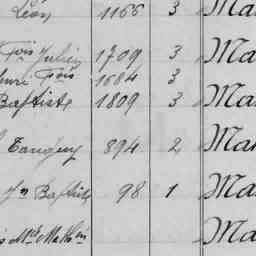 Léon 1166 3 Ma
Fois Julien 1709 3 Ma
Henri Fois 1684 3
Baptiste 1809 3 Ma
Tanguy 894 2 Ma
Jn Baptiste 98 1 Ma
Ma